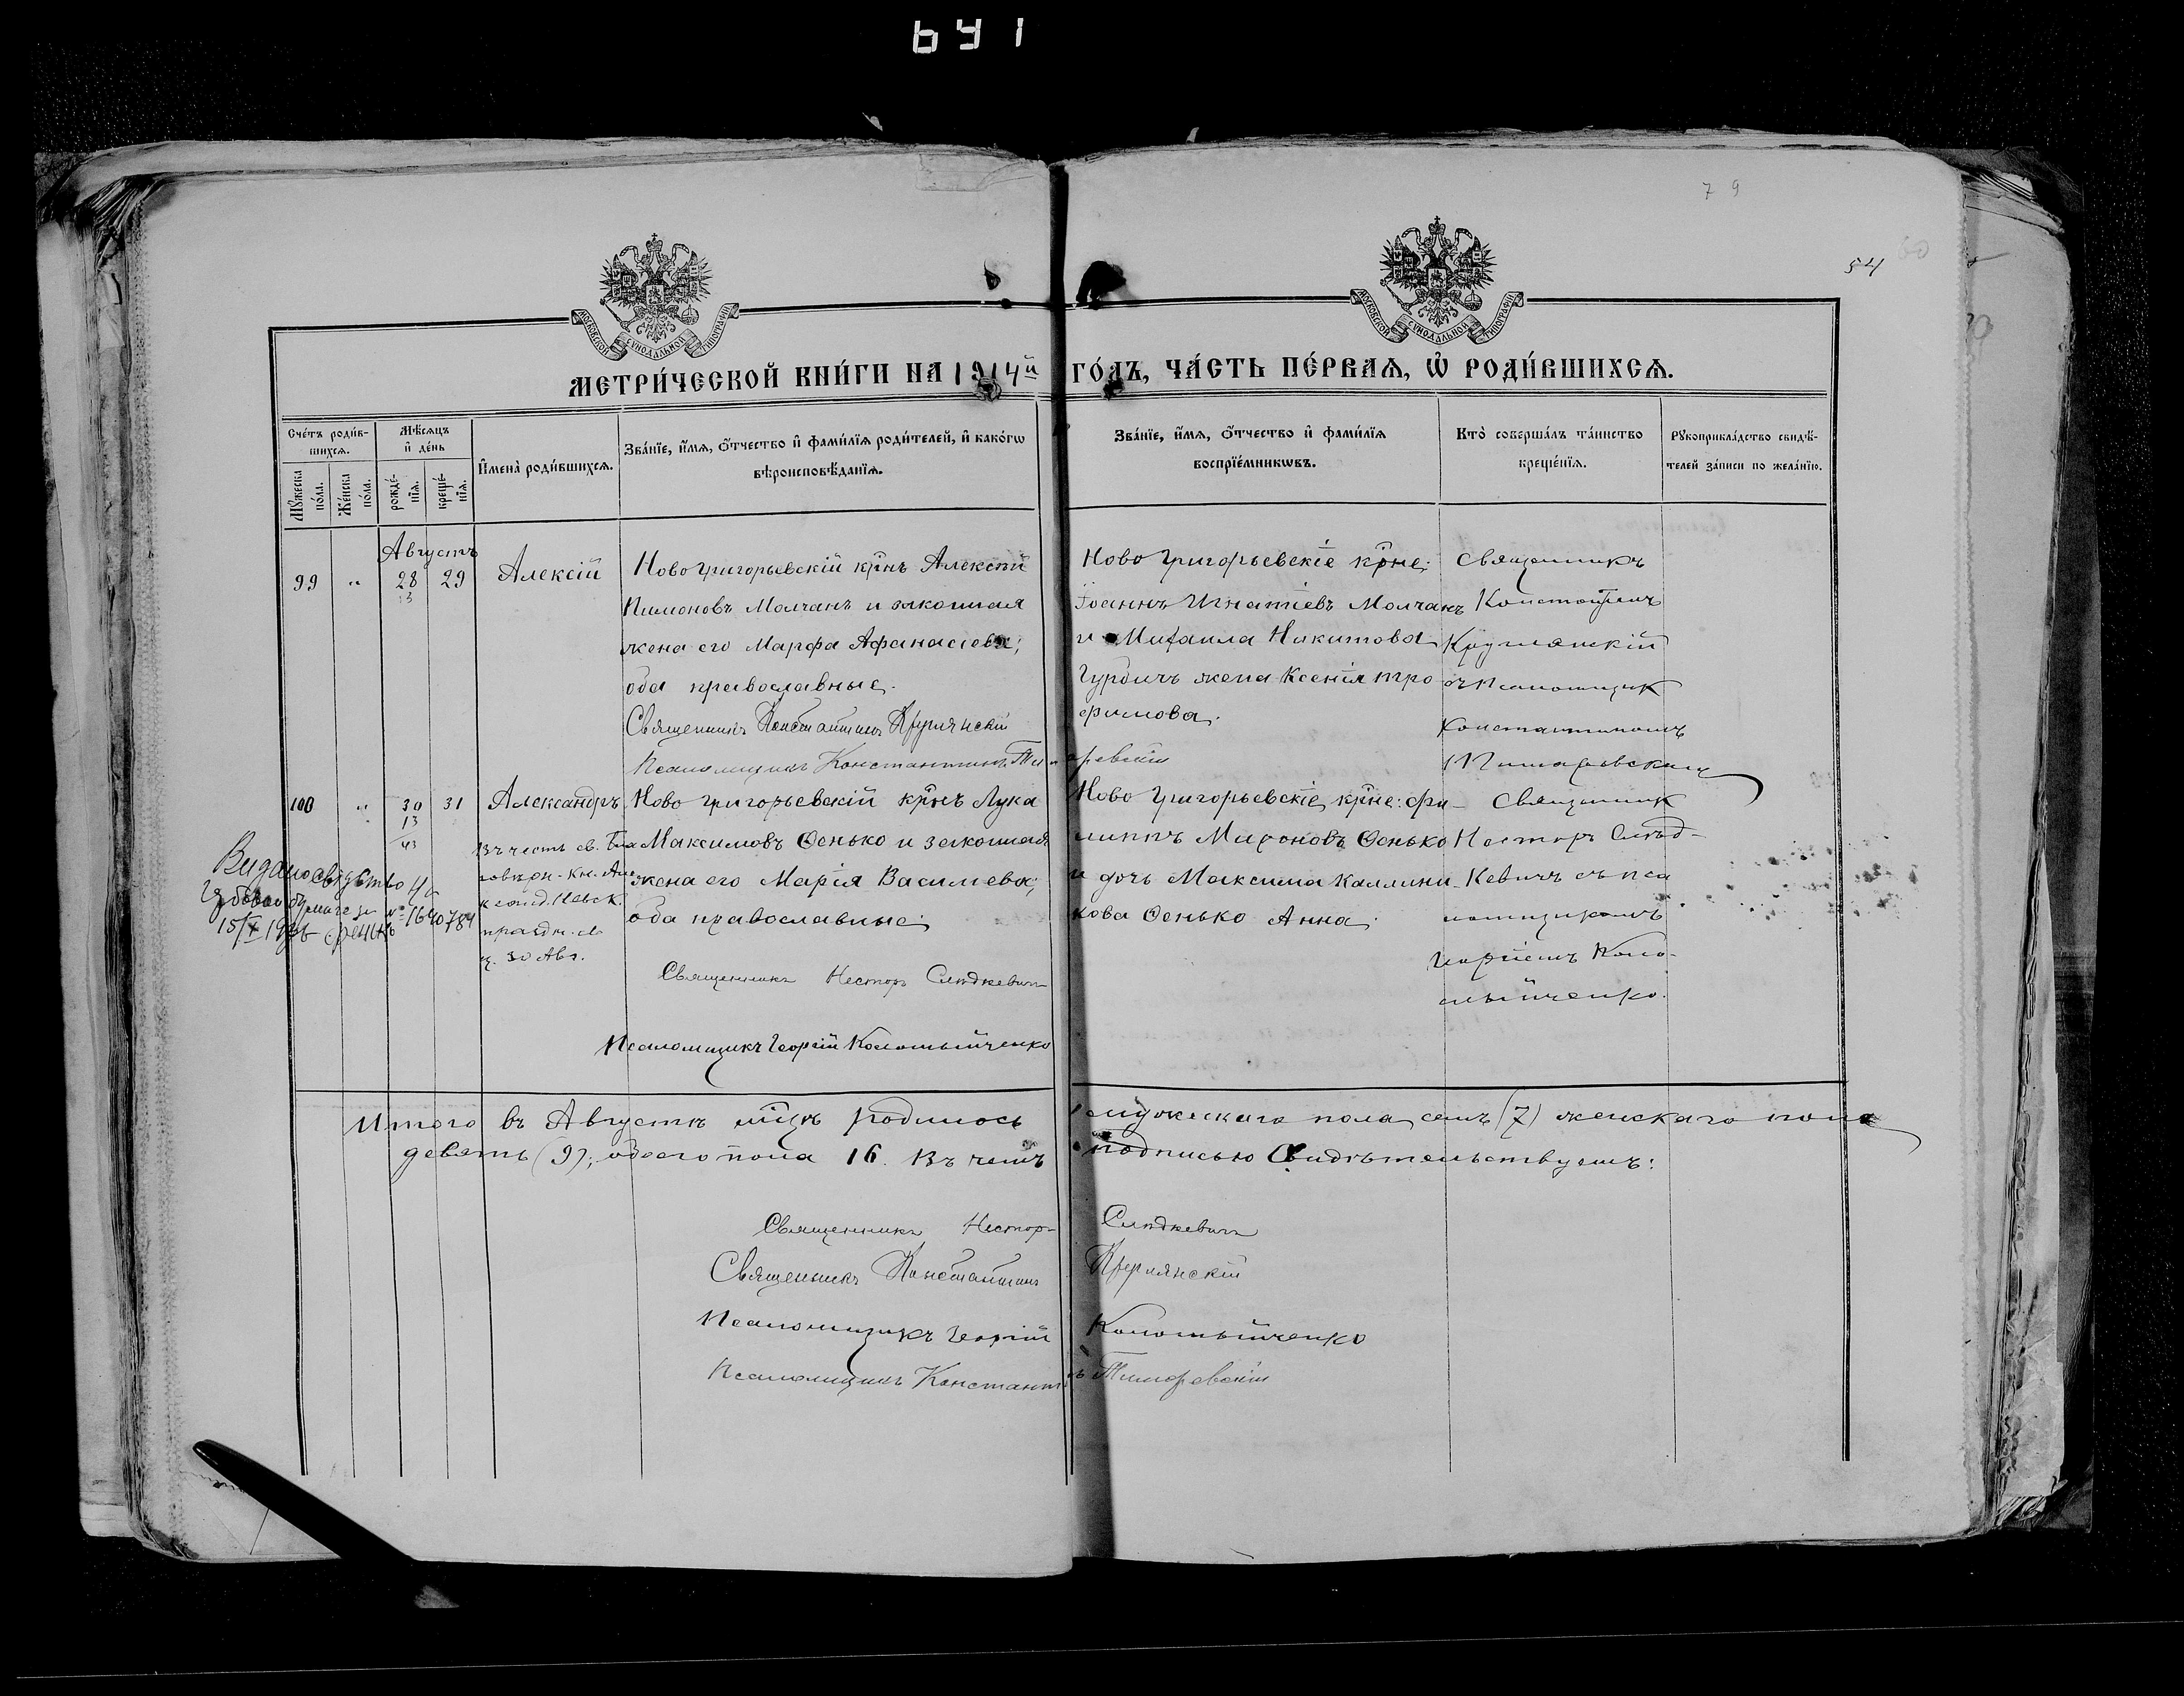 641
79
54
МОСКОВСКОЙ СУНОДАЛЬНОЙ ТИПОГРАФІИ
МОСКОВСКОЙ СУНОДАЛЬНОЙ ТИПОГРАФІИ
МЕТРИ́ЧЕСКОЙ КНИ́ГИ НА 1914й ГО́ДЪ, ЧА́СТЬ ПЕ́РВАѦ, Ѡ҆ РОДИ́ВШИХСѦ.
Сче́тъ роди́в-
шихсѧ.
Мꙋ́жеска по́ла.
Же́нска по́ла.
Мѣ́сѧцъ
и҆ де́нь
рожде́-
нїѧ.
креще́-
нїѧ.
И҆мена̀ роди́вшихсѧ.
Зва́нїе, и҆́мѧ, ѻ҆́тчество и҆ фами́лїѧ роди́телей, и҆ како́гѡ
вѣроисповѣ́данїѧ.
Зва́нїе, и҆́мѧ, ѻ҆́тчество и҆ фами́лїѧ
воспрїе́мникѡвъ.
Кто̀ соверша́лъ та́инство
креще́нїѧ.
Рꙋкоприкла́дство свидѣ́-
телей за́писи по жела́нїю.
Августъ
99 „ 28 29 Алексій
13
Ново Григорьевскій крнъ Алексій
Пимоновъ Молчанъ и законная
жена его Марфа Афанасіева;
оба православные.
Священникъ Константинъ Круглянскій
Псаломщикъ Константинъ
Ново Григорьевскіе крне:
Іоаннъ Игнатіевъ Молчанъ
и Михаила Никитова
Гурбичъ жена Ксенія Тро
фимова.
Священникъ
Константинъ
Круглянскій
съ псаломщик
Константиномъ
100 „ 30 31 Александръ
13
43
въ честь св. Бла
говѣрн. Кн. Але
ксанд. Невск.
праздн. м
ц. 30 Авг.
Видано свідоцтво на
гербовом бумаге за
№ 1640784
15/X 19 Фенько
Ново Григорьевскій крнъ Лука
Максимовъ Ѳенько и законная
жена его Марія Василіева;
оба православные.
Священникъ Несторъ Слѣдкевичъ
Псаломщикъ Георгій Коломыйченко
Ново Григорьевскіе крне: Фи-
липпъ Мироновъ Ѳенько
и дочь Максима Каллини
кова Ѳенько Анна.
Священник
Несторъ Слѣд-
кевичъ съ пса
ломщикомъ
Георгіемъ Коло-
мыйченко.
Итого въ Августѣ мцѣ родилось мужескаго пола семь (7) женскаго пола
девять (9); обоего пола 16. Въ чемъ подписью свидѣтельствуемъ:
Священникъ Несторъ Слѣдкевичъ
Священникъ Константинъ Круглянскій
Псаломщикъ Георгій Коломыйченко
Псаломщикъ Константинъ